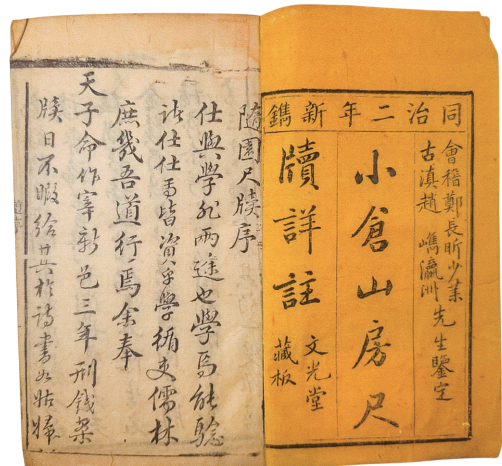 同治二年新鐫
會稽鄭長昕少萊
古滇趙 瀛洲
先生鑒定
小倉山房尺
牘詳註
文光堂
藏板
隨園尺牘序
仕與學非兩途也學焉能驗
諸仕仕皆資乎學循吏儒林
庶幾吾道行焉余奉
天子命作宰新邑三年刑錢案
牘日不暇給其於詩書如姑